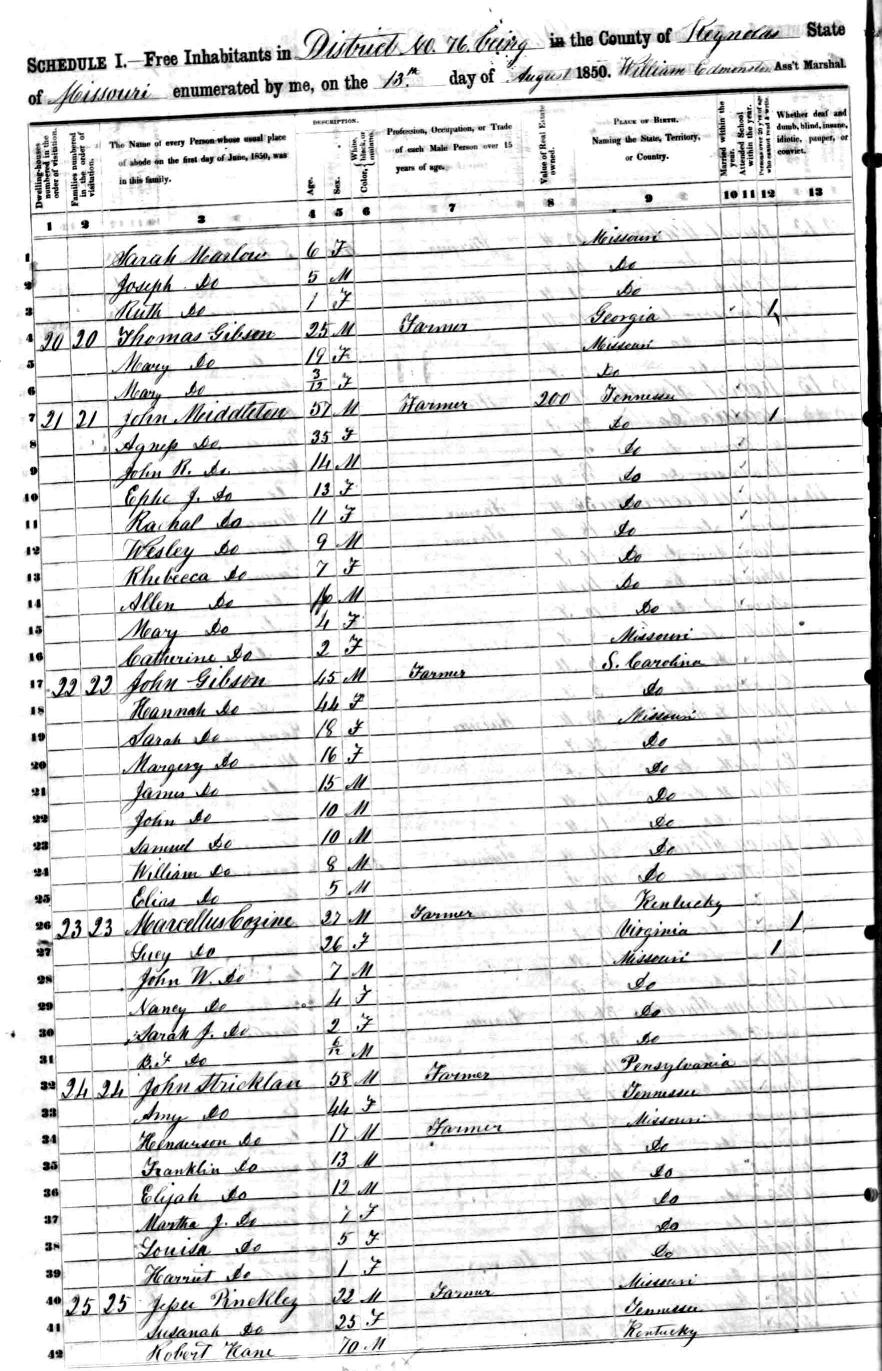 SCHEDULE I.—Free Inhabitants in District No. 76 being in the County of Reynolds State
of Missouri enumerated by me, on the 13th day of August 1850. William Edmonston Ass't Marshal.
Dwelling-houses numbered in the order of visitation. Families numbered in the order of visitation. The Name of every Person whose usual place of abode on the first day of June, 1850, was in this family. DESCRIPTION. Age. Sex. Color, White, black, or mulatto. Profession, Occupation, or Trade of each Male Person over 15 years of age. Value of Real Estate owned. PLACE OF BIRTH. Naming the State, Territory, or Country. Married within the year. Attended School within the year. Persons over 20 y'rs of age who cannot read & write. Whether deaf and dumb, blind, insane, idiotic, pauper, or convict.
1 2 3 4 5 6 7 8 9 10 11 12 13
1 Sarah Marlow 6 F Missouri
2 Joseph Do 5 M Do
3 Ruth Do 1 F Do
4 20 20 Thomas Gibson 25 M Farmer Georgia 1
5 Mary Do 19 F Missouri
6 Mary Do 3/12 F Do
7 21 21 John Middleton 57 M Farmer 200 Tennessee
8 Agness Do 35 F Do 1
9 John R. Do 14 M Do
10 Ephe J. Do 13 F Do
11 Rachal Do 11 F Do
12 Wesley Do 9 M Do
13 Rhebecca Do 7 F Do
14 Allen Do M Do
15 Mary Do 4 F Do
16 Catherine Do 2 F Missouri
17 22 22 John Gibson 45 M Farmer S. Carolina
18 Hannah Do 44 F Do
19 Sarah Do 18 F Missouri
20 Margery Do 16 F Do
21 James Do 15 M Do
22 John Do 10 M Do
23 Samuel Do 10 M Do
24 William Do 8 M Do
25 Elias Do 5 M Do
26 23 23 Marcellus Cozine 27 M Farmer Kentucky
27 Lucy Do 26 F Virginia 1
28 John W. Do 7 M Missouri 1
29 Nancy Do 4 F Do
30 Sarah J. Do 2 F Do
31 B. F Do 6/12 M Do
32 24 24 John Stricklan 58 M Farmer Pensylvania
33 Amy Do 44 F Tennessee
34 Henderson Do 17 M Farmer Missouri
35 Franklin Do 13 M Do
36 Elijah Do 12 M Do
37 Martha J. Do 7 F Do
38 Louisa Do 5 F Do
39 Harriet Do 1 F Do
40 25 25 Jesse Rinckley 22 M Farmer Missouri
41 Susanah Do 25 F Tennessee
42 Robert Kane 70 M Kentucky